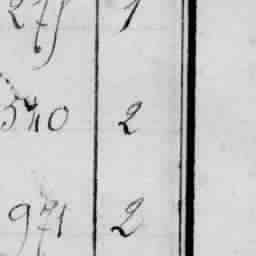 275 1
540 2
971 2